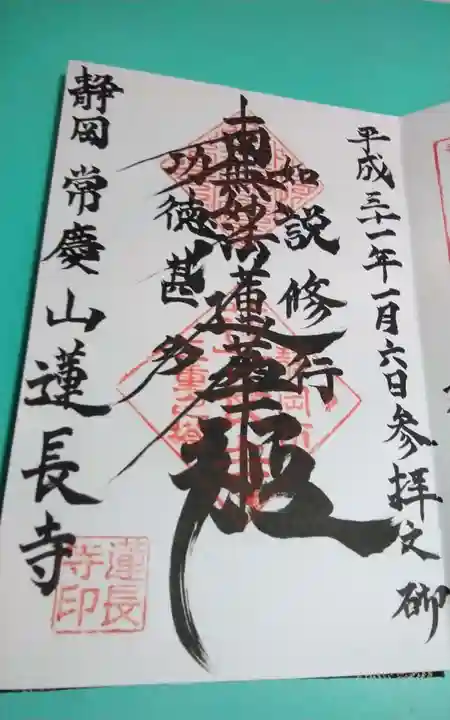 平成三十一年一月六日参拝之砌
如説修行
南無妙法蓮華経
功徳甚多
静岡 常慶山蓮長寺
蓮長
寺印